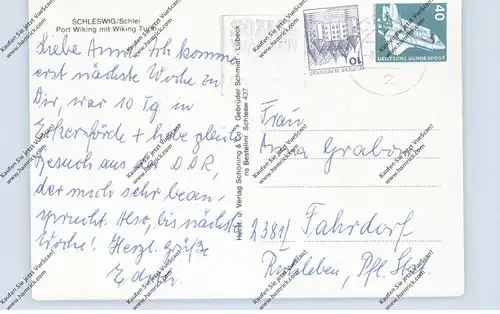 SCHLESWIG/Schlei
Port Wiking mit Wiking Turm
Liebe Anna! Ich komme
erst nächste Woche zu
Dir, war 10 Tg in
Eckernförde + habe gleich
Besuch aus der DDR,
der mich sehr bean-
sprucht. Also, bis nächste
Woche! Herzl. Grüße
Herst. u. Verlag Schöning & Co + Gebrüder Schmidt · Lübeck
Bestellnr. Schlesw 437
10
DEUTSCHE BUNDESPOST
40
DEUTSCHE BUNDESPOST
2
Frau
Anna Grabow
2381/ Fahrdorf
Pfl. Stat
Kaufen Sie jetzt VueScan!
www.hamrick.com